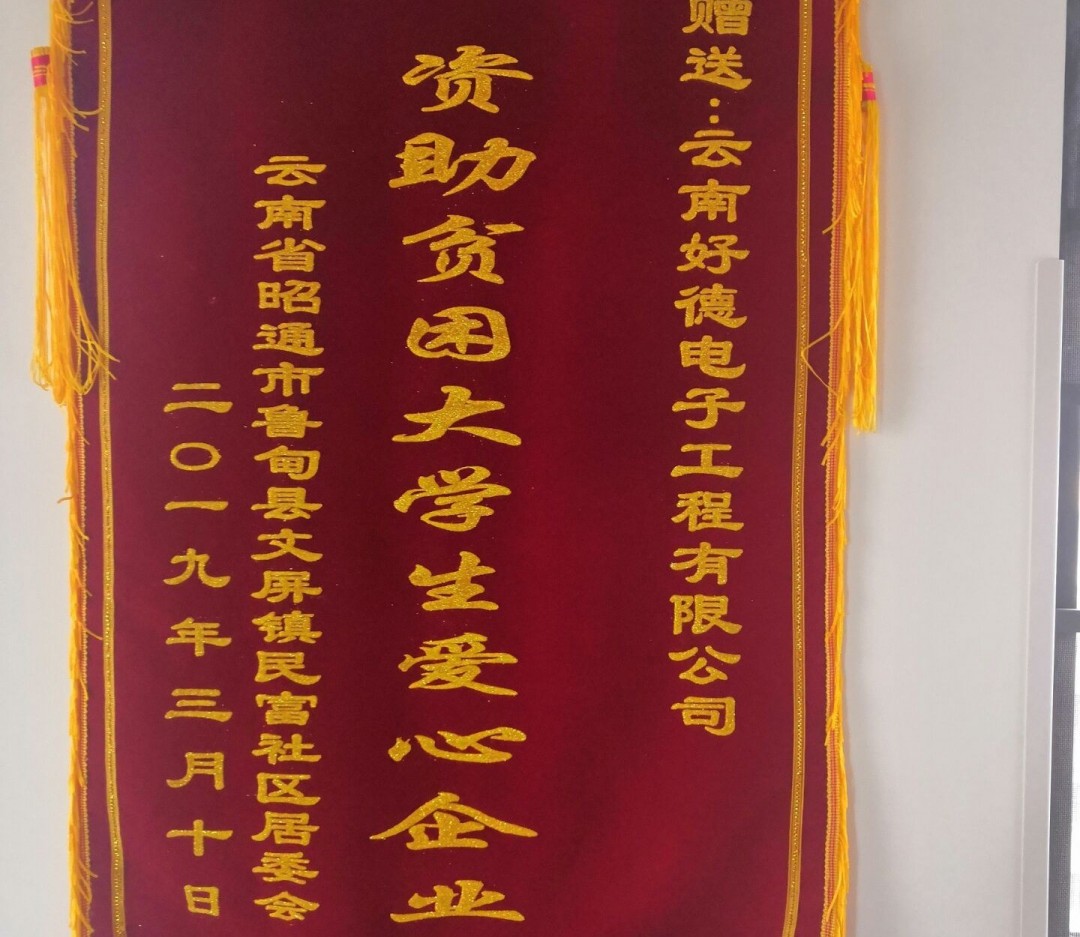 赠送：云南好德电子工程有限公司
资助贫困大学生爱心企业
云南省昭通市鲁甸县文屏镇民富社区居委会
二〇一九年三月十日